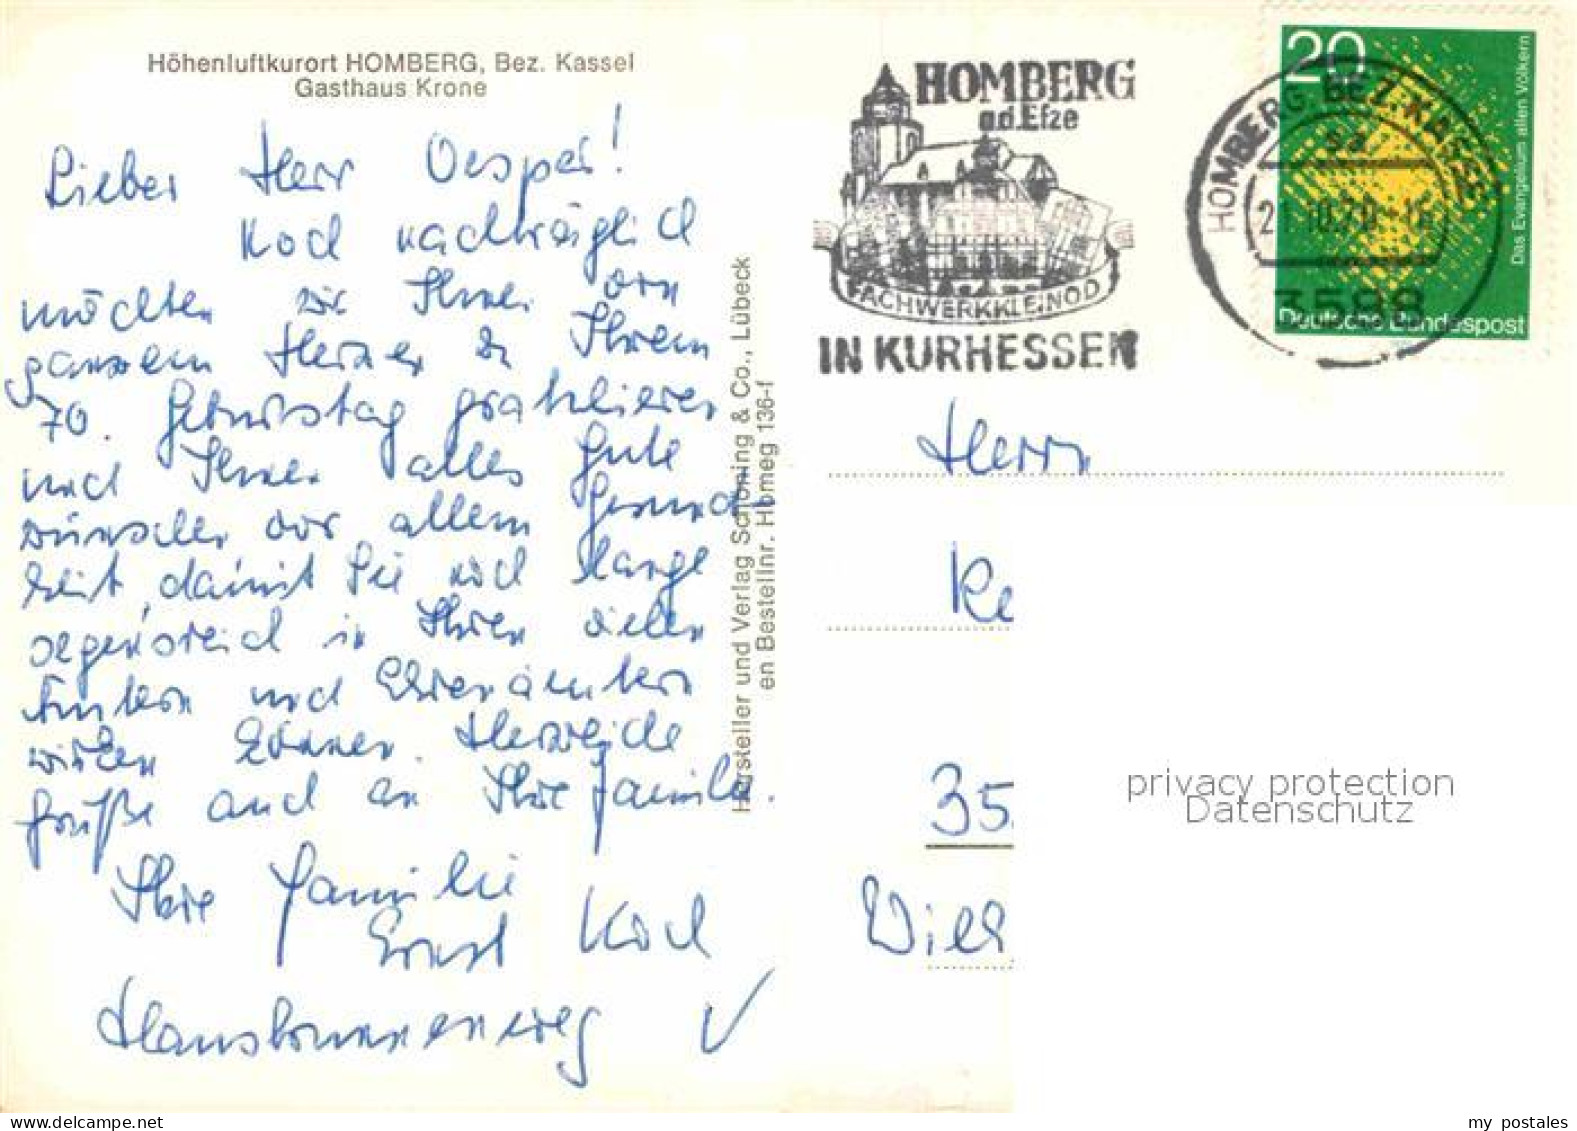 Höhenluftkurort HOMBERG, Bez. Kassel
Gasthaus Krone
Lieber Herr Oesper!
Noch nachträglich
möchten wir Ihnen von
ganzem Herzen zu Ihrem
70. Geburtstag gratulieren
und Ihnen alles Gute
wünschen vor allem Gesund-
heit, damit Sie noch lange
segensreich in Ihren vielen
Ämtern und Ehrenämtern
wirken können. Herzliche
Grüße auch an Ihre Familie.
Ihre Familie
Ernst Koch
Hansbrunnenweg
Hersteller und Verlag Schöning & Co., Lübeck
en Bestellnr. Homeg 136-f
HOMBERG
a.d.Efze
FACHWERKKLEINOD
IN KURHESSEN
HOMBERG, BEZ. KASSEL
sa
21.10.70-16
3588
20
Das Evangelium allen Völkern
Deutsche Bundespost
Herrn
Re
35
privacy protection
Datenschutz
my postales